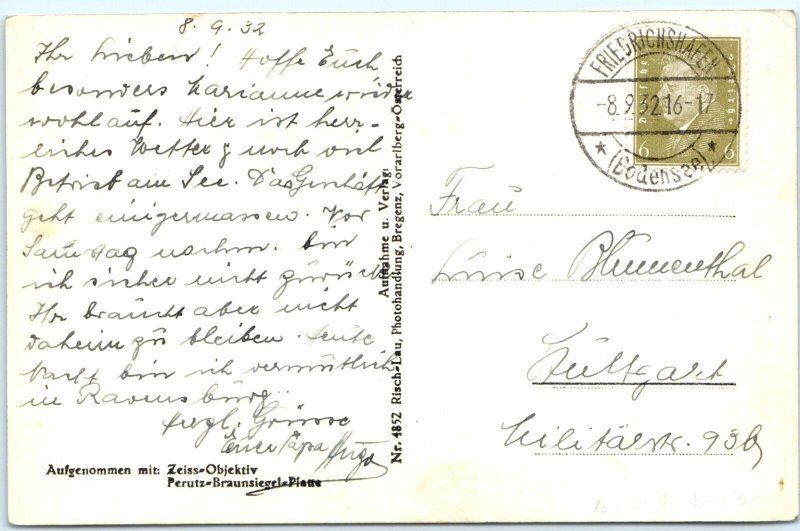 8.9.32
Ihr Lieben! Hoffe Euch
besonders Marianne wieder
wohlauf. Hier ist herr-
liches Wetter & noch viel
Betrieb am See. Das Geschäft
geht einigermassen. Vor
Samstag nachm. bin
ich sicher nicht zurück
Ihr braucht aber nicht
daheim zu bleiben. Heute
Nacht bin ich vermutlich
in Ravensburg.
Herzl. Grüsse
Euer Papa Hugo
Aufgenommen mit: Zeiss-Objektiv
Perutz-Braunsiegel-Platte
Nr. 4852 Risch-Lau, Photohandlung, Bregenz, Vorarlberg-Österreich
Aufnahme u. Verlag:
FRIEDRICHSHAFEN
-8.9.32.16-17
* (Bodensee) *
6 6
Frau
Luise Blumenthal
Stuttgart
Militärstr. 93b